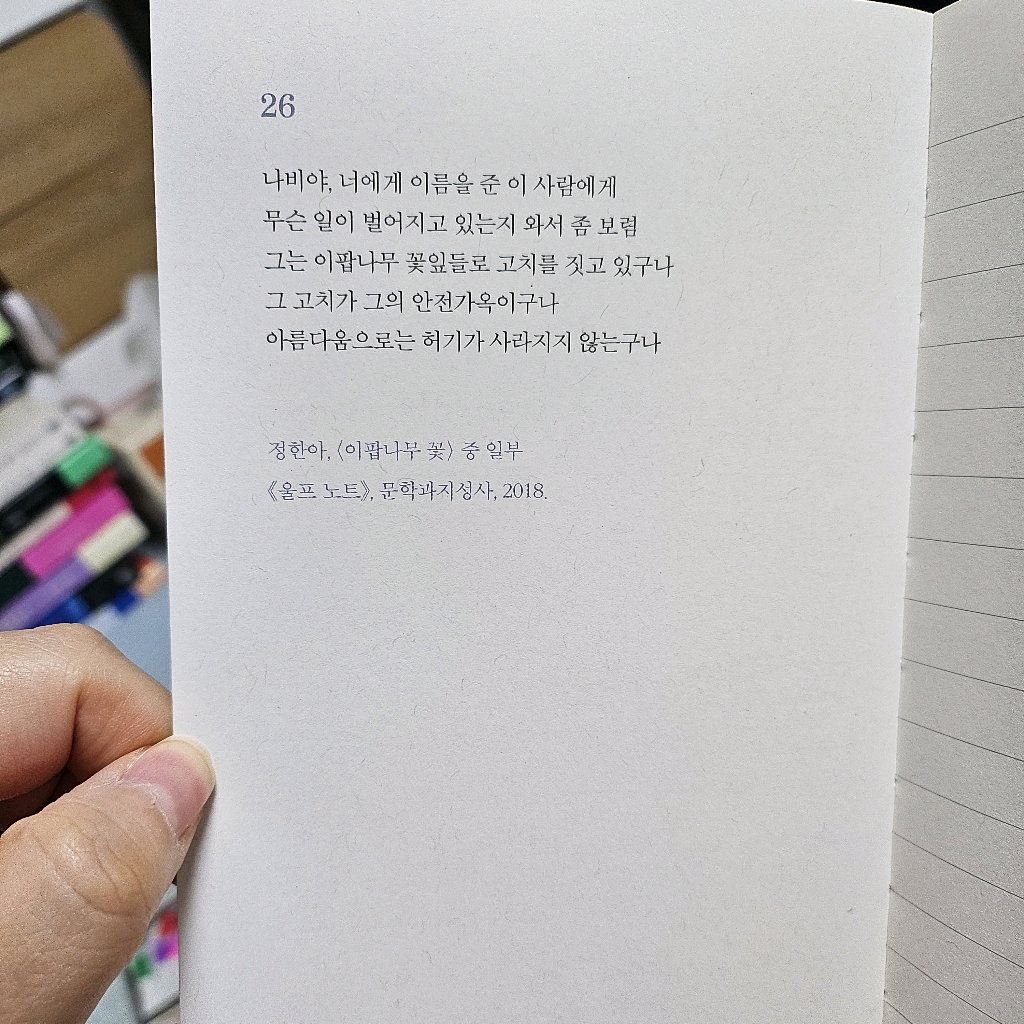 26
나비야, 너에게 이름을 준 이 사람에게
무슨 일이 벌어지고 있는지 와서 좀 보렴
그는 이팝나무 꽃잎들로 고치를 짓고 있구나
그 고치가 그의 안전가옥이구나
아름다움으로는 허기가 사라지지 않는구나
정한아, 〈이팝나무 꽃〉 중 일부
《울프 노트》, 문학과지성사, 2018.